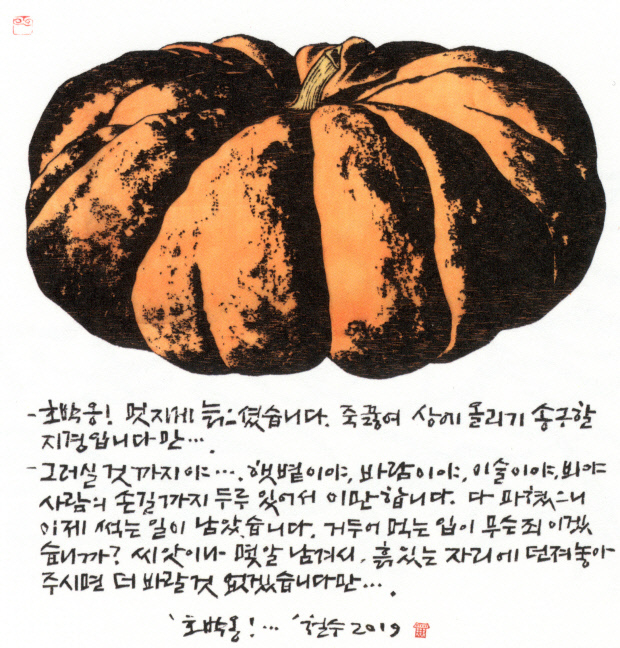 - 호박옹! 멋지게 늙으셨습니다. 죽 끓여 상에 올리기 송구할
지경입니다만….
- 그러실 것 까지야…. 햇볕이야, 바람이야, 이슬이야, 봐야
사람의 손길까지 두루 있어서 이만합니다. 다 파했으니
이제 썩는 일이 남았습니다. 거두어 먹는 입이 무슨 죄이겠
습니까? 씨앗이나 몇알 남겨서, 흙있는 자리에 던져놓아
주시면 더 바랄 것 없겠습니다만….
'호박옹!… ' 철수 2019